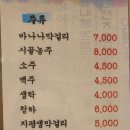 주류
바나나막걸리 7,000
시골농주 8,000
소주 4,500
맥주 4,500
생탁 4,000
청하 6,000
지평생막걸리 5,000